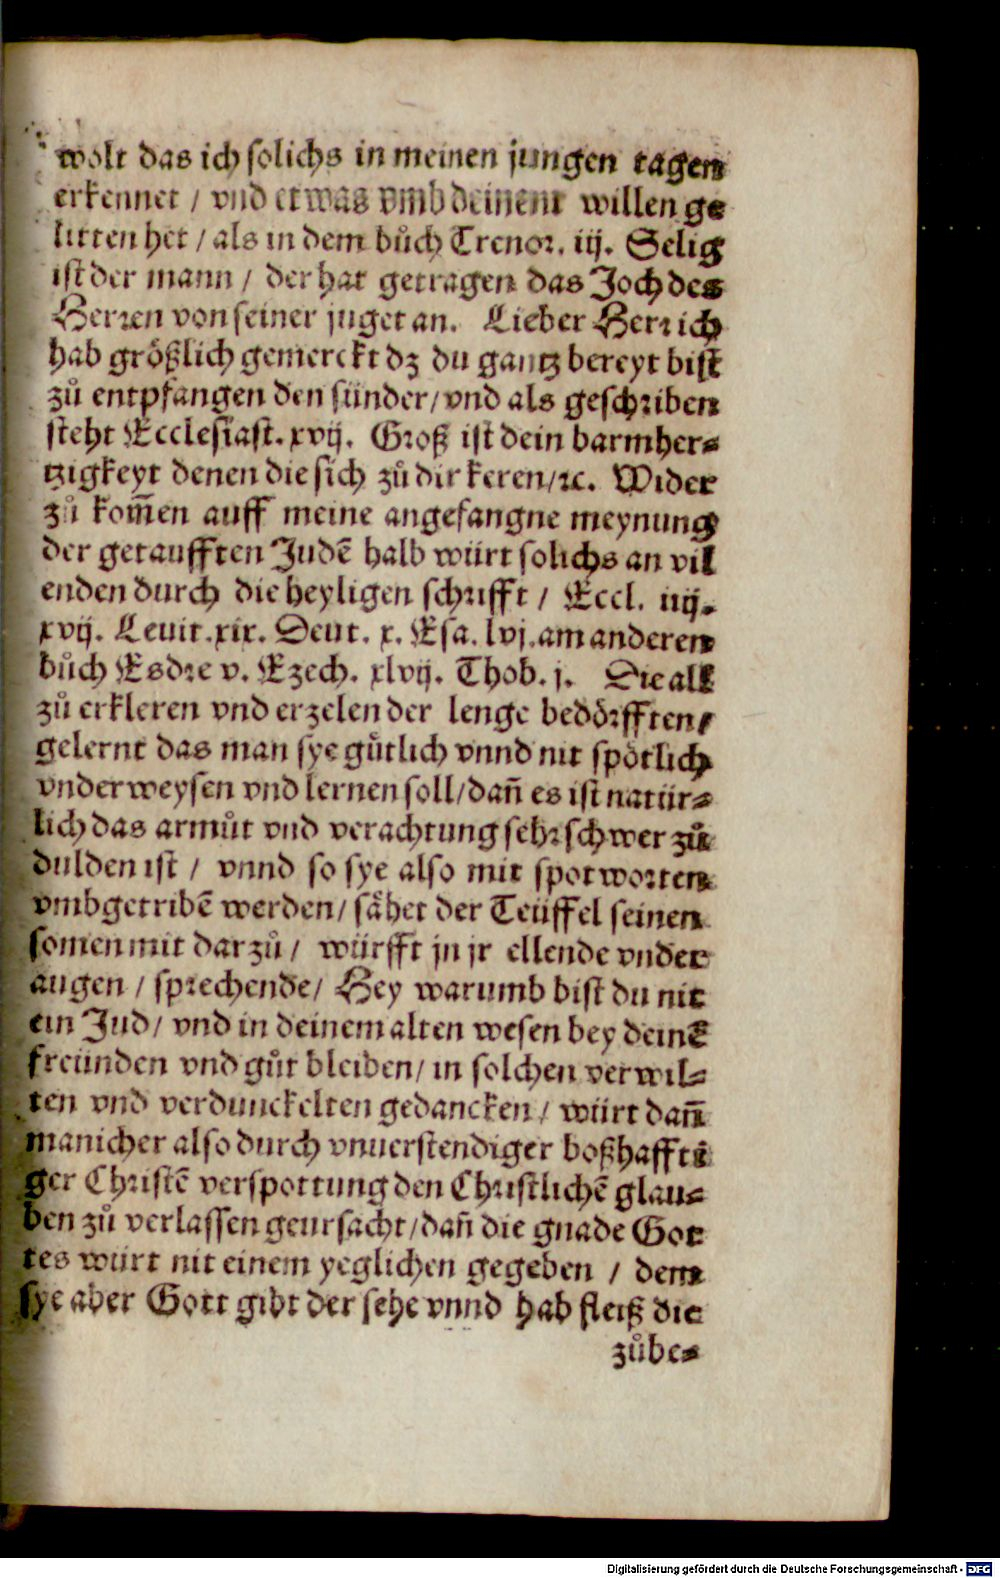 wolt das ich solichs in meinen jungen tagen
erkennet / vnd etwas vmb deinent willen ge
litten het / als in dem bůch Trenor. iij. Selig
ist der mann / der hat getragen das Joch des
Herren von seiner juget an. Lieber Herr ich
hab größlich gemerckt dz du gantz bereyt bist
zů entpfangen den sünder / vnd als geschriben
steht Ecclesiast. xvij. Groß ist dein barmher-
tzigkeyt denen die sich zů dir keren / ꝛc. Wider
zů kom̄en auff meine angefangne meynung
der getaufften Judē halb würt solichs an vil
enden durch die heyligen schrifft / Eccl. iiij.
xvij. Leuit. xix. Deut. x. Esa. lvj. am anderen
bůch Esdre v. Ezech. xlvij. Thob. j. Die all
zů erkleren vnd erzelen der lenge bedörfften /
gelernt das man sye gůtlich vnnd nit spötlich
vnderweysen vnd lernen soll / dañ es ist natür-
lich das armůt vnd verachtung sehr schwer zů
dulden ist / vnnd so sye also mit spotworten
vmbgetribē werden / sähet der Teüffel seinen
somen mit darzů / würfft jn jr ellende vnder
augen / sprechende / Hey warumb bist du nit
ein Jud / vnd in deinem alten wesen bey deinē
freünden vnd gůt bleiben / in solchen verwil-
ten vnd verdunckelten gedancken / würt dañ
manicher also durch vnuerstendiger boßhaffti
ger Christē verspottung den Christlichē glau-
ben zů verlassen geursacht / dañ die gnade Got
tes würt nit einem yeglichen gegeben / dem
sye aber Gott gibt der sehe vnnd hab fleiß die
zůbe-
Digitalisierung gefördert durch die Deutsche Forschungsgemeinschaft - DFG